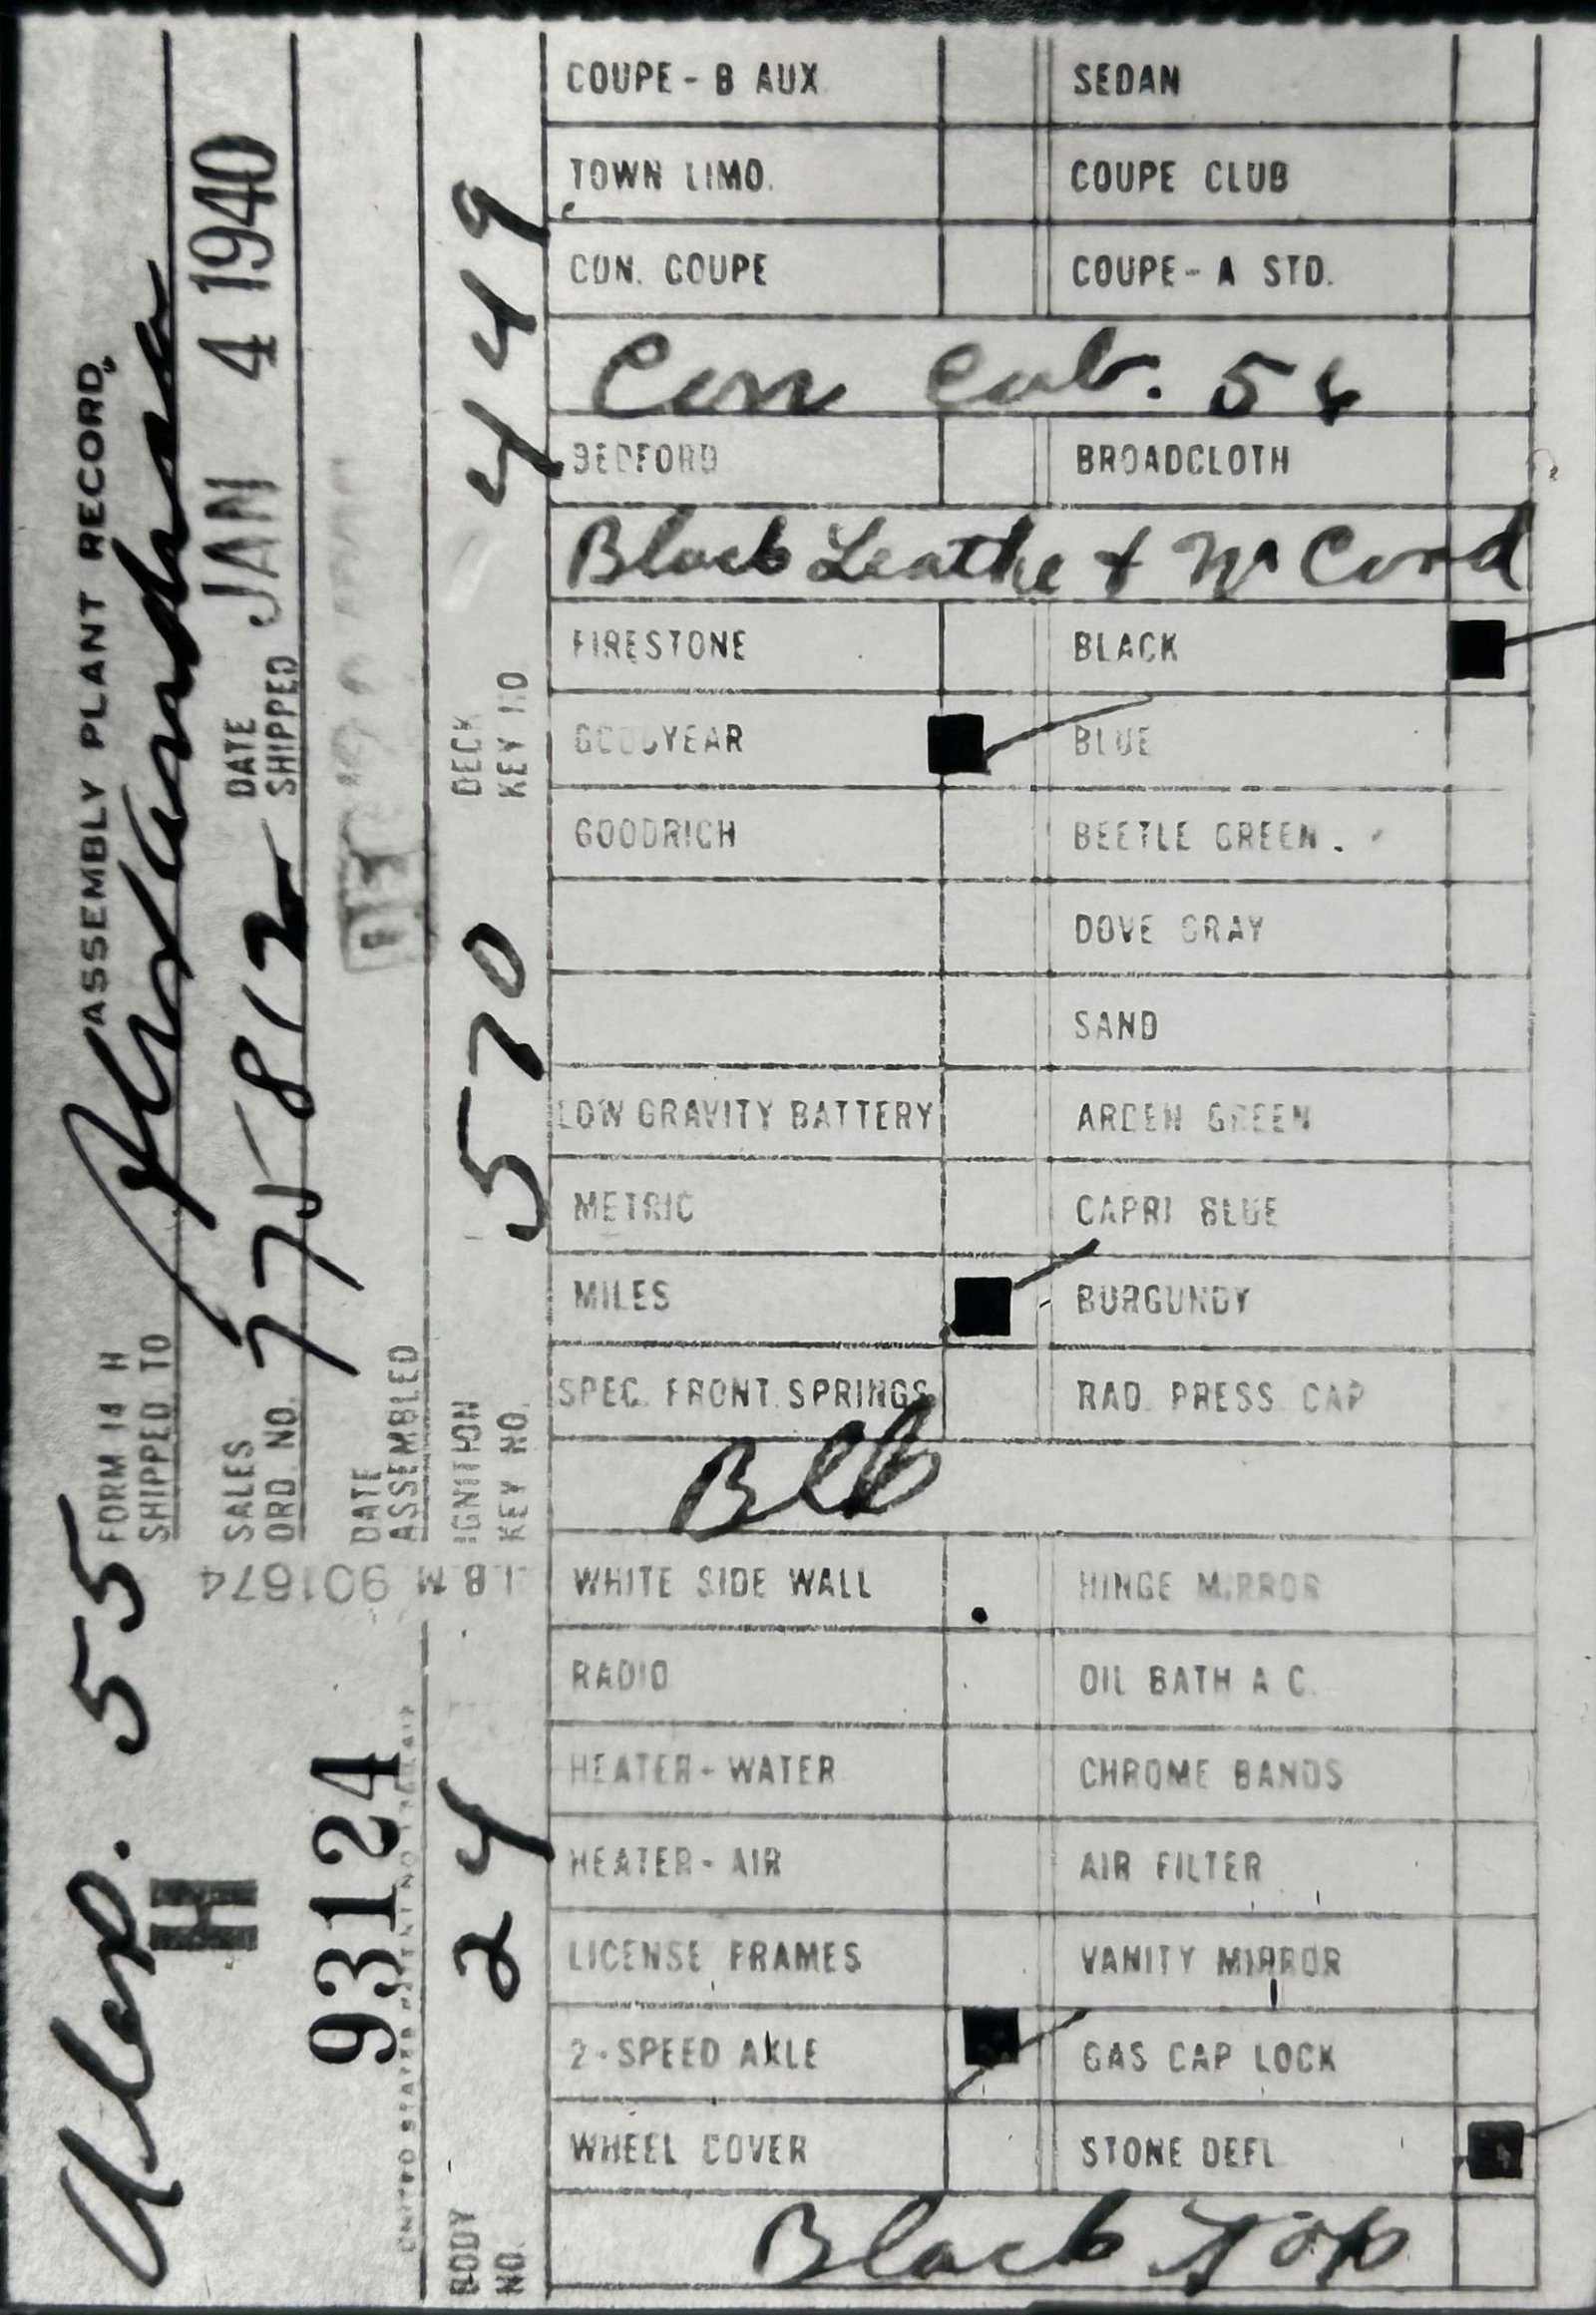 COUPE - B AUX. SEDAN
TOWN LIMO. COUPE CLUB
CON. COUPE COUPE - A STD.
Con Cab. 56
BEDFORD BROADCLOTH
Black Leathe & W Cord
FIRESTONE BLACK
GOODYEAR BLUE
GOODRICH BEETLE GREEN.
DOVE GRAY
SAND
LOW GRAVITY BATTERY ARDEN GREEN
METRIC CAPRI BLUE
MILES BURGUNDY
SPEC. FRONT SPRINGS RAD. PRESS CAP
Blk
WHITE SIDE WALL HINGE MIRROR
RADIO OIL BATH A C
HEATER - WATER CHROME BANDS
HEATER - AIR AIR FILTER
LICENSE FRAMES VANITY MIRROR
2-SPEED AXLE GAS CAP LOCK
WHEEL COVER STONE DEFL
Black Top
55
FORM 14 H ASSEMBLY PLANT RECORD
SHIPPED TO
H
93124
SALES ORD. NO. 775812 DATE SHIPPED JAN 4 1940
DATE ASSEMBLED
I.B.M 901674
BODY NO. 24 IGNITION KEY NO. 570 DECK KEY NO 449